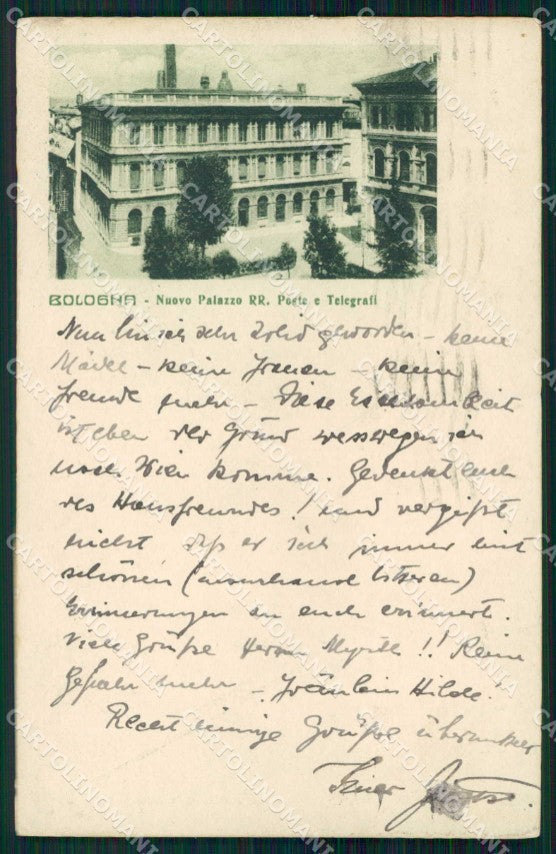 BOLOGNA - Nuovo Palazzo RR. Poste e Telegrafi
Nun bin ich sehr solid geworden - keine
Mädel - keine Frauen - keine
Freunde mehr - Diese Einsamkeit
ist eben der Grund wesswegen ich
nach Wien komme. Gedenkt auch
des Hausfreundes! und vergißt
nicht daß er sich immer mit
schönen (
Erinnerungen an euch erinnert.
Viele Grüße Herrn !! Keine
Gefahr mehr - Fräulein Hilde.
Recht innige Grüße
CARTOLINOMANIA